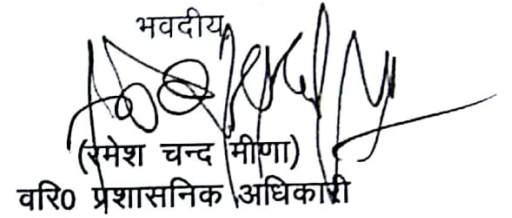 भवदीय
(रमेश चन्द मीणा)
वरि0 प्रशासनिक अधिकारी